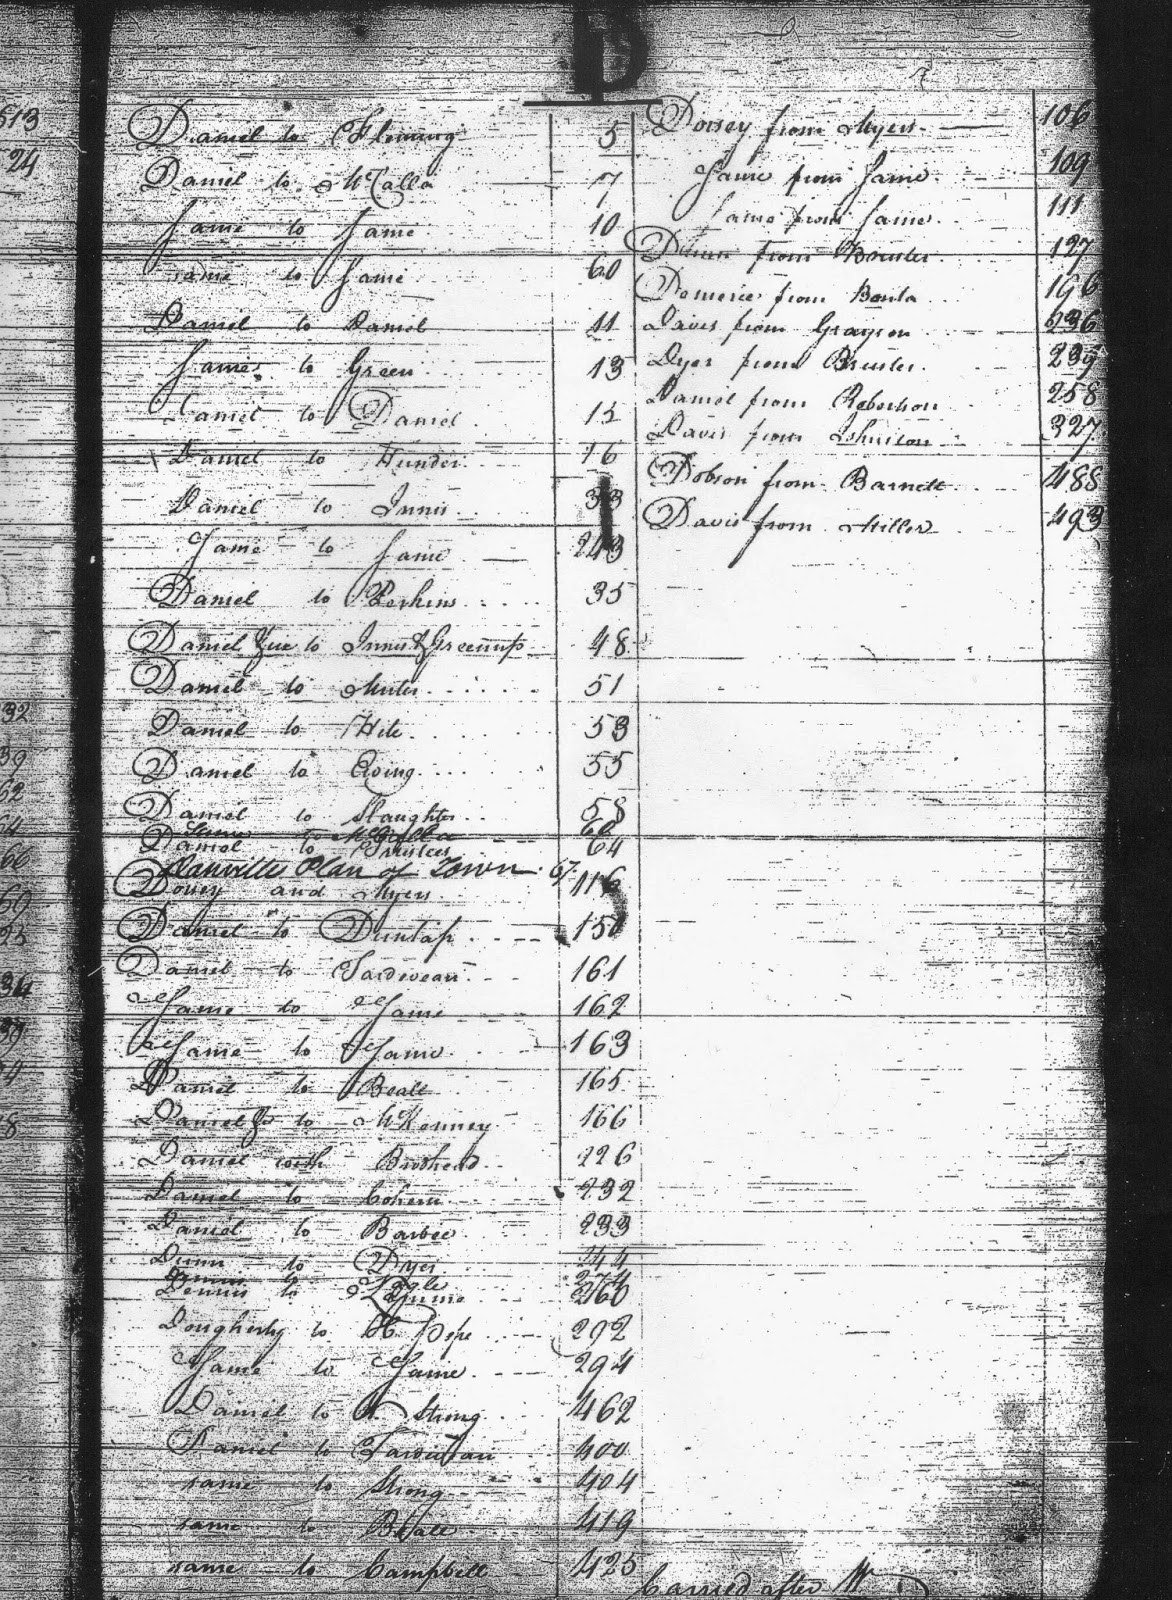 D
513
24
Daniel to Fleming 5
Daniel to McCalla 7
Same to Same 10
same to Same 60
Daniel to Daniel 11
Same to Green 13
Daniel to Daniel 15
Daniel to Hunder 16
Daniel to Innis 33
Same to Same 243
Daniel to Perkins 35
Daniel to Innis & Greenup 48
Daniel to Muter 51
Daniel to Hite 53
Daniel to Ewing 55
Daniel to Slaughter 58
Same to McCalla
Daniel to Trustees 64
Danville Plan of Town 67
Dorsey and Myers 116
Daniel to Dunlap 150
Daniel to Tardiveau 161
Same to Same 162
Same to Same 163
Daniel to Beall 165
Daniel Jr to McKenney 166
Daniel with Brodhead 226
Daniel to Cohern 232
Daniel to Barbee 233
Dunn to Dyer 244
Dennis to 260
Dougherty to Pope 292
Same to Same 294
Daniel to Strong 462
Daniel to Tardiveau 400
same to Strong 404
same to Beall 419
same to Campbell 425
Dorsey from Myers 106
Same from Same 109
Same from Same 111
from Brewster 127
from 196
Davis from Grayson 236
Dyer from Brewster 239
Daniel from Robertson 258
Davis from Johnson 327
Dobson from Barnett 488
Davis from Miller 493
Carried after W